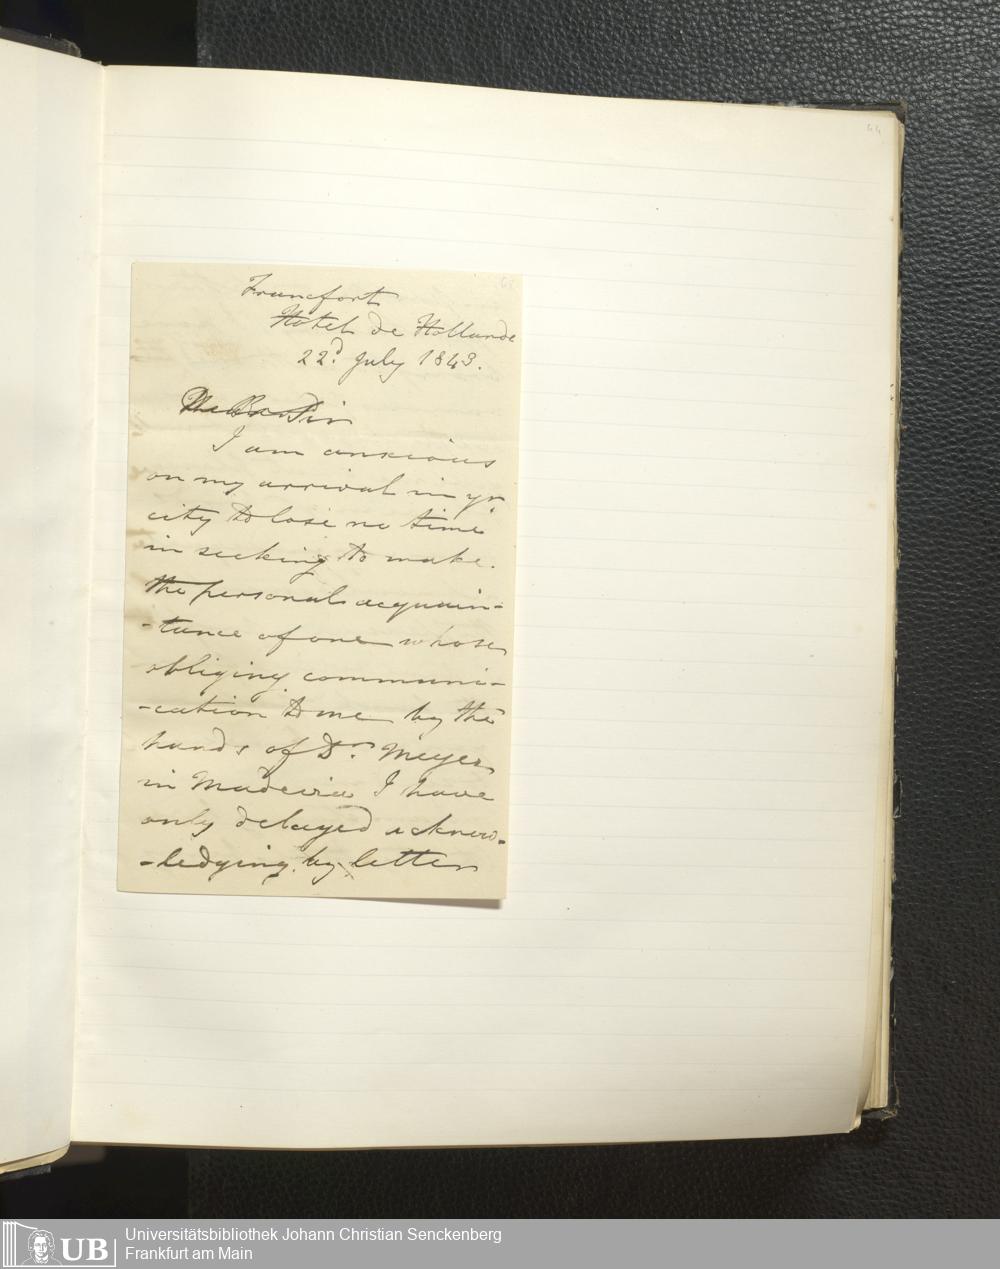 44
68
Francfort
Hotel de Hollande
22d July 1843.
Sir
I am anxious
on my arrival in yr
city to lose no time
in seeking to make
the personal acquain-
-tance of one whose
obliging communi-
-cation to me by the
hands of Dr. Meyer
in Madeira I have
only delayed acknow-
-ledging by letter
UB
Universitätsbibliothek Johann Christian Senckenberg
Frankfurt am Main